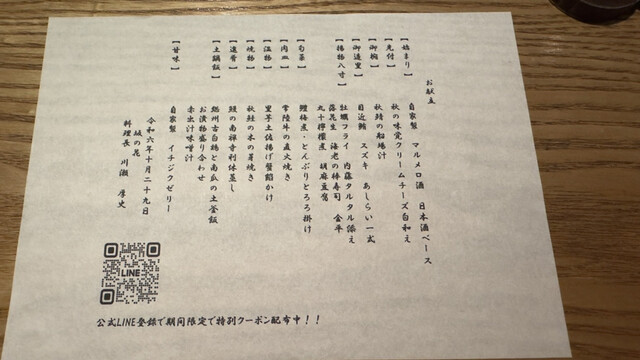 お献立
【始まり】 自家製 マルメロ酒 日本酒ベース
【先付】 秋の味覚クリームチーズ白和え
【御椀】 秋鯖の船場汁
【御造里】 目近鮪 スズキ あしらい一式
【揚物八寸】 牡蠣フライ 内藤タルタル添え
落花生 海老の棒寿司 金平
丸十檸檬煮 胡麻豆腐
【旬菜】 鰹梅煮・とんぶりとろろ掛け
【肉皿】 常陸牛の直火焼き
【温物】 里芋土佐揚げ蟹餡かけ
【焼物】 秋鮭の木の芽焼き
【進肴】 鰻の南禅寺利休蒸し
【土鍋飯】 総州古白鶏と南瓜の土釜飯
お漬物盛り合わせ
赤出汁味噌汁
【甘味】 自家製 イチジクゼリー
令和六年十月二十九日
城の花
料理長 川瀬 厚史
LINE
公式LINE登録で期間限定で特別クーポン配布中！！